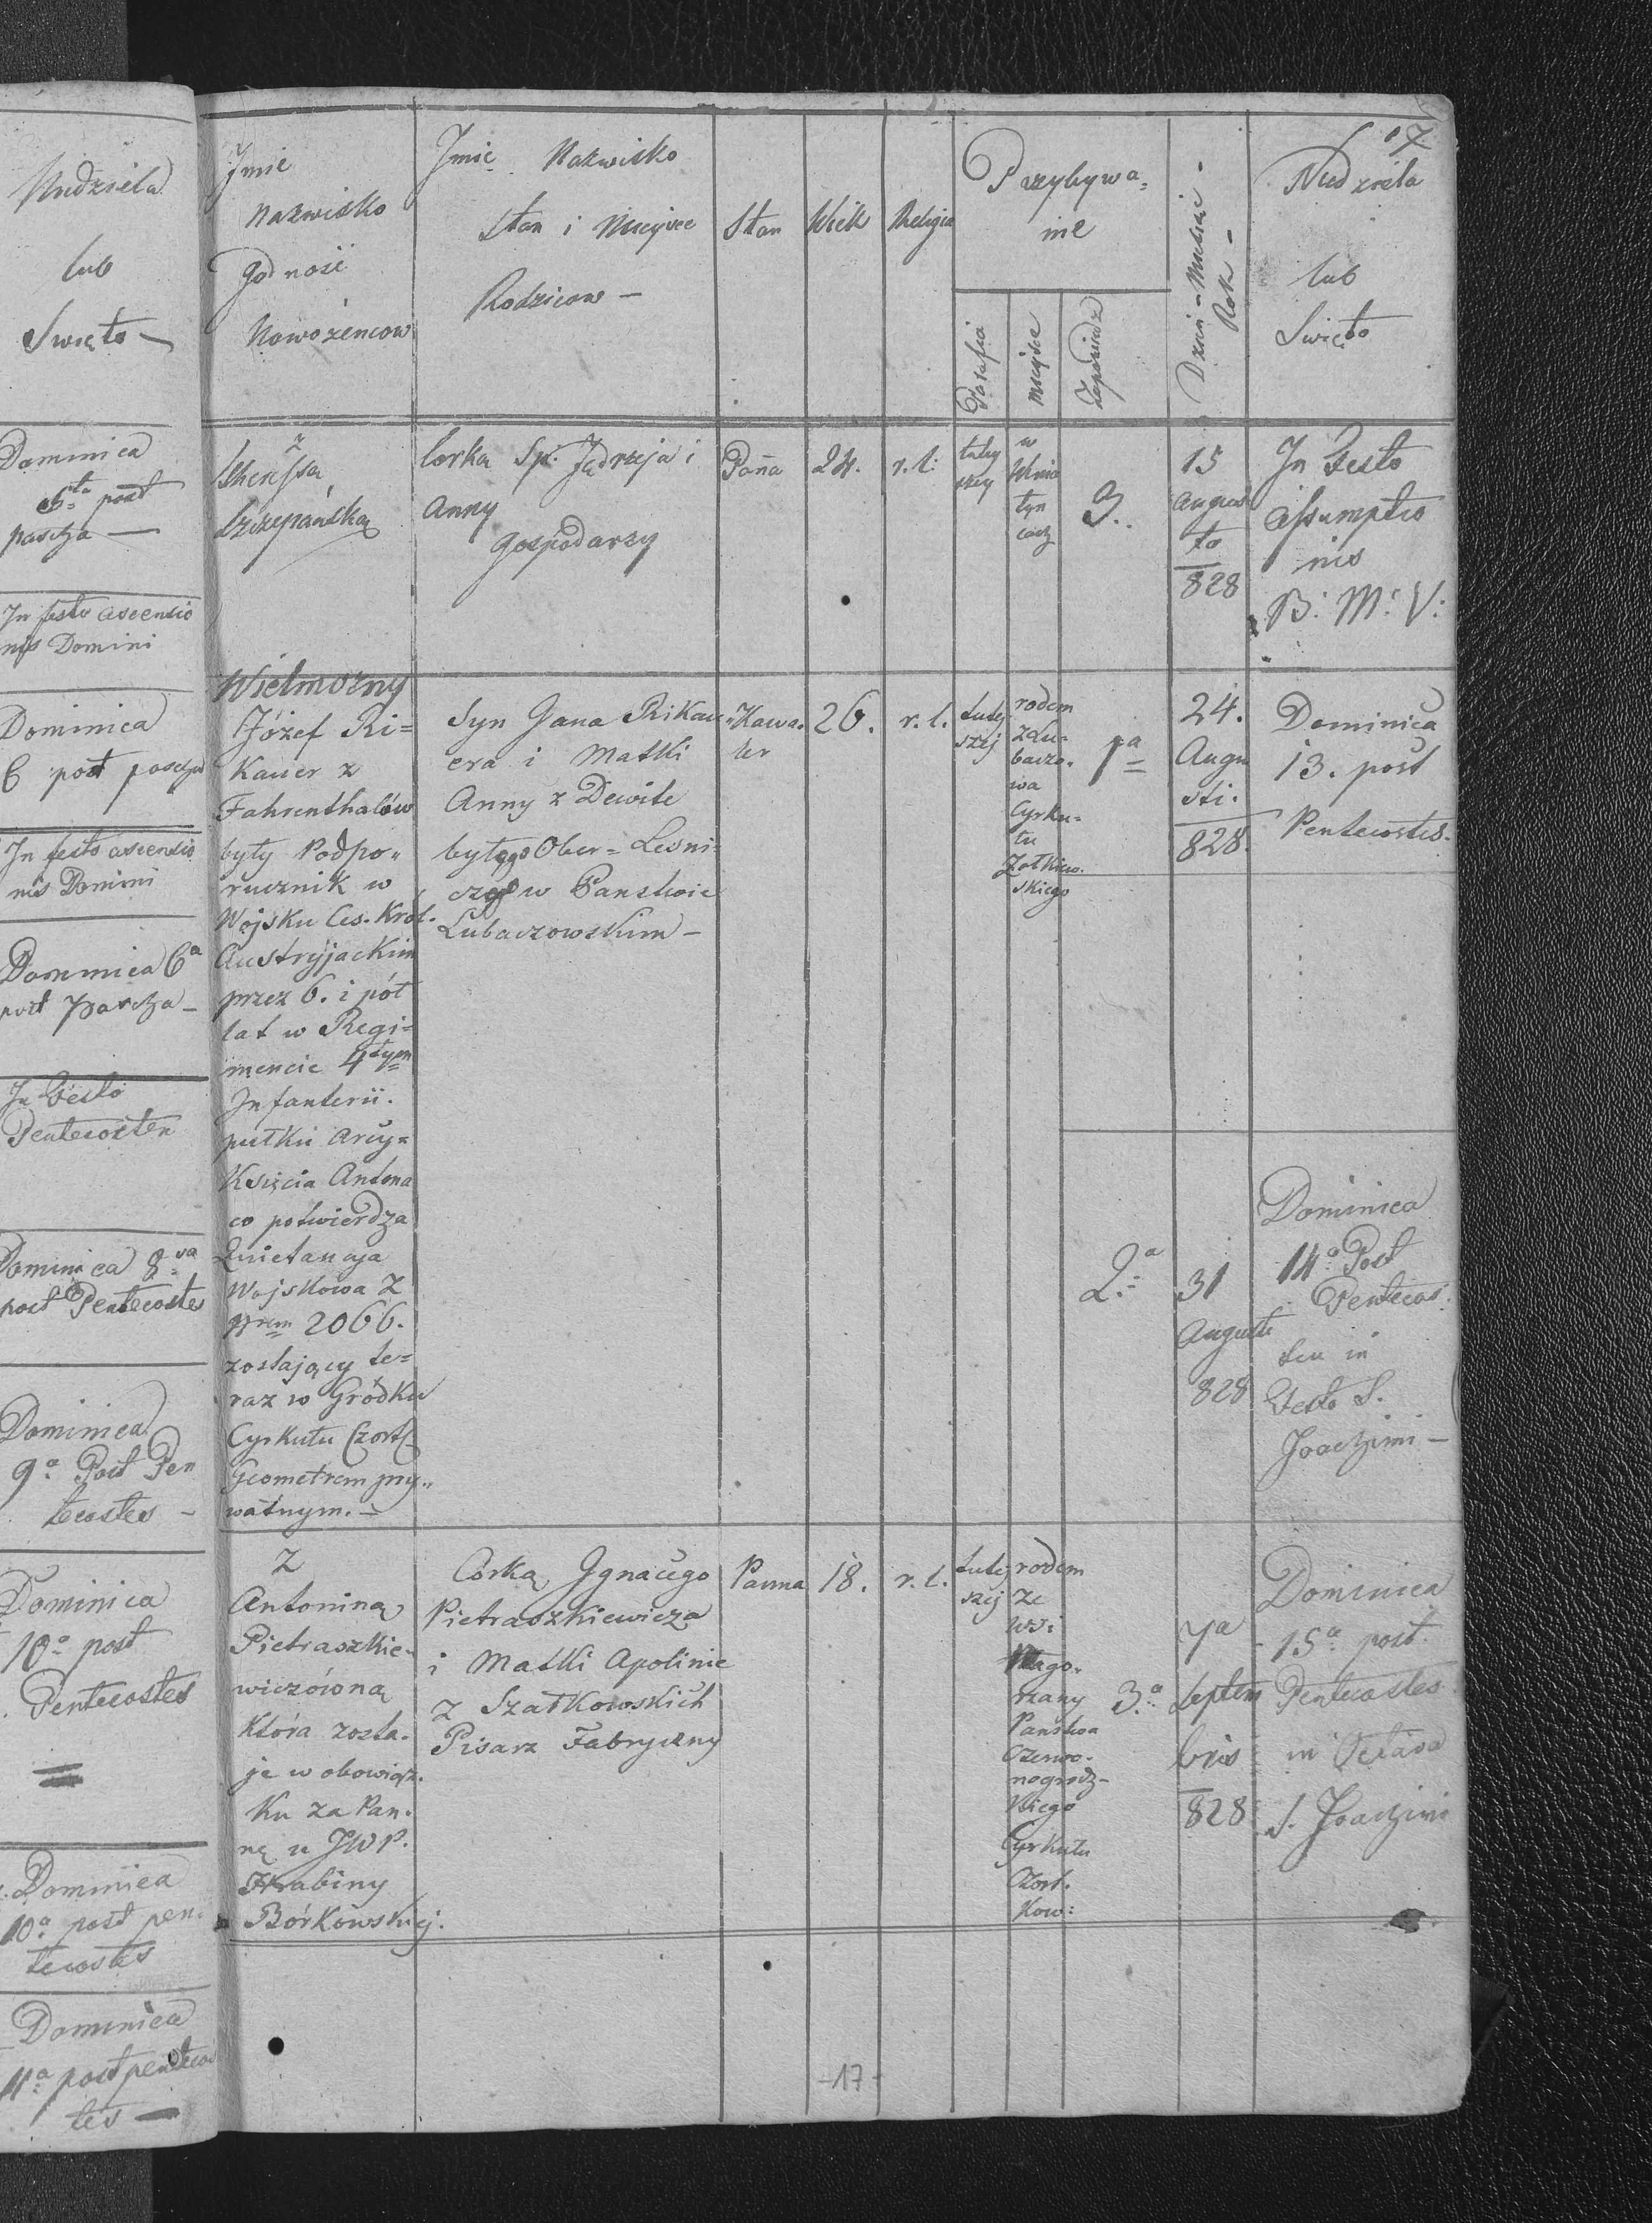 Niedziela
lub
Swięto —
Dominica
6ta post
pascha —
In festo ascensio
nis Domini
Dominica
6 post pascha
In festo ascensio
nis Domini
Dominica 6a
post Pascha —
In Festo
Pentecosten
Dominica 8va
post Pentecostes
Dominica
9a Post Pen
tecostes —
Dominica
10a post
Pentecostes
Dominica
10a post pen.
tecostes
Dominica
11a post pentecos
tes —
Jmie
Nazwisko
Godność
Nowożencow
Jmie Nazwisko
Stan i Mieysce
Rodzicow —
Stan
Wiek
Religia
Przybywa=
nie
Parafia
mieysce
Zapowiedz
Dzień - Miesiąc -
Rok -
Niedziela
lub
Swięto
z
Szczepańską
Corka Sp. Jędrzeja i
Anny
Gospodarzy
Pańa
24.
r. l:
tutey
szey
w
3.
15
Augus
to
828
In Festo
Assumptio
nis
B: M: V:
Wielmożny
Józef Ri=
kauer z
Fahrenthalów
były Podpo„
rucznik w
Wojsku Ces. Król.
Austryjackim
przez 6. i pół
lat w Regi=
mencie 4tym
Infanterii.
pułku Arcy=
Księcia Antona
co potwierdza
Kwietancya
Wojskowa z
Nrem 2066.
zostający te=
raz w Gródku
Cyrkułu Czort.
Geometrem pry„
watnym. —
Syn Jana Rikau„
era i Matki
Anny z Dewite
byłego Ober=Lesni=
czego w Panstwie
Lubaczowskim —
Kawa.
ler
26.
r. l.
tutej
szej
rodem
z Lu-
baczo.
wa
Cyrku-
łu
Żołkiew.
skiego
1a
24.
Augu
sti.
828.
Dominica
13. post
Pentecostes.
2a
31
Augusti
828
Dominica
14a Post
Pentecos.
ten in
Festo S.
Joachimi —
z
Antoniną
Pietraszkie-
wiczówną
Która zosta.
je w obowiąz.
ku za Pan.
nę u JWP.
Hrabiny
Borkowskiej.
Corką Ignacego
Pietraszkiewicza
i Matki Apolinie
z Szatkowskich
Pisarz Fabryczny
Panna
18.
r. l.
tutej
szej
rodem
ze
wsi
rzany
Panstwa
Czerwo-
nogrodz-
kiego
Cyrkułu
Czort.
kow:
3a
7a
Septem
bris
828
Dominica
15a post
Pentecostes
in Octava
S. Joachimi
-17-